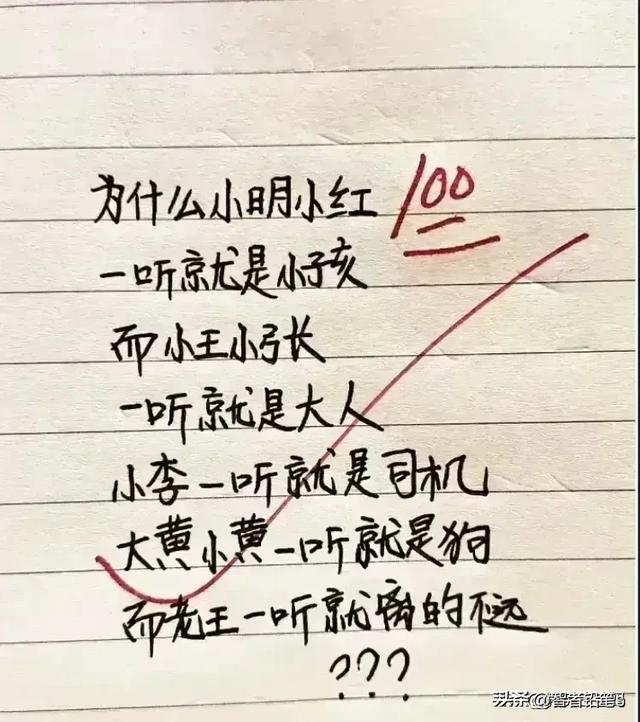 为什么小明小红
100
一听就是小孩
而小王小张
一听就是大人
小李一听就是司机
大黄小黄一听就是狗
而老王一听就离的不远
???
头条@智者铅笔